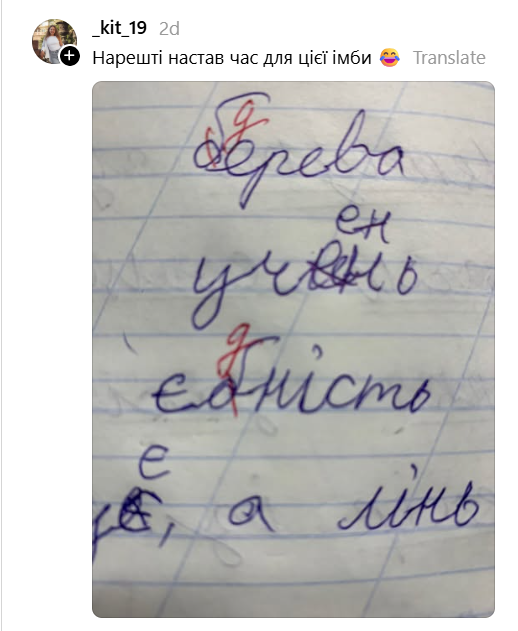 _kit_19 2d
Нарешті настав час для цієї імби 😂 Translate
д
берева
ен
учень
д
єбність
є
є, а лінь